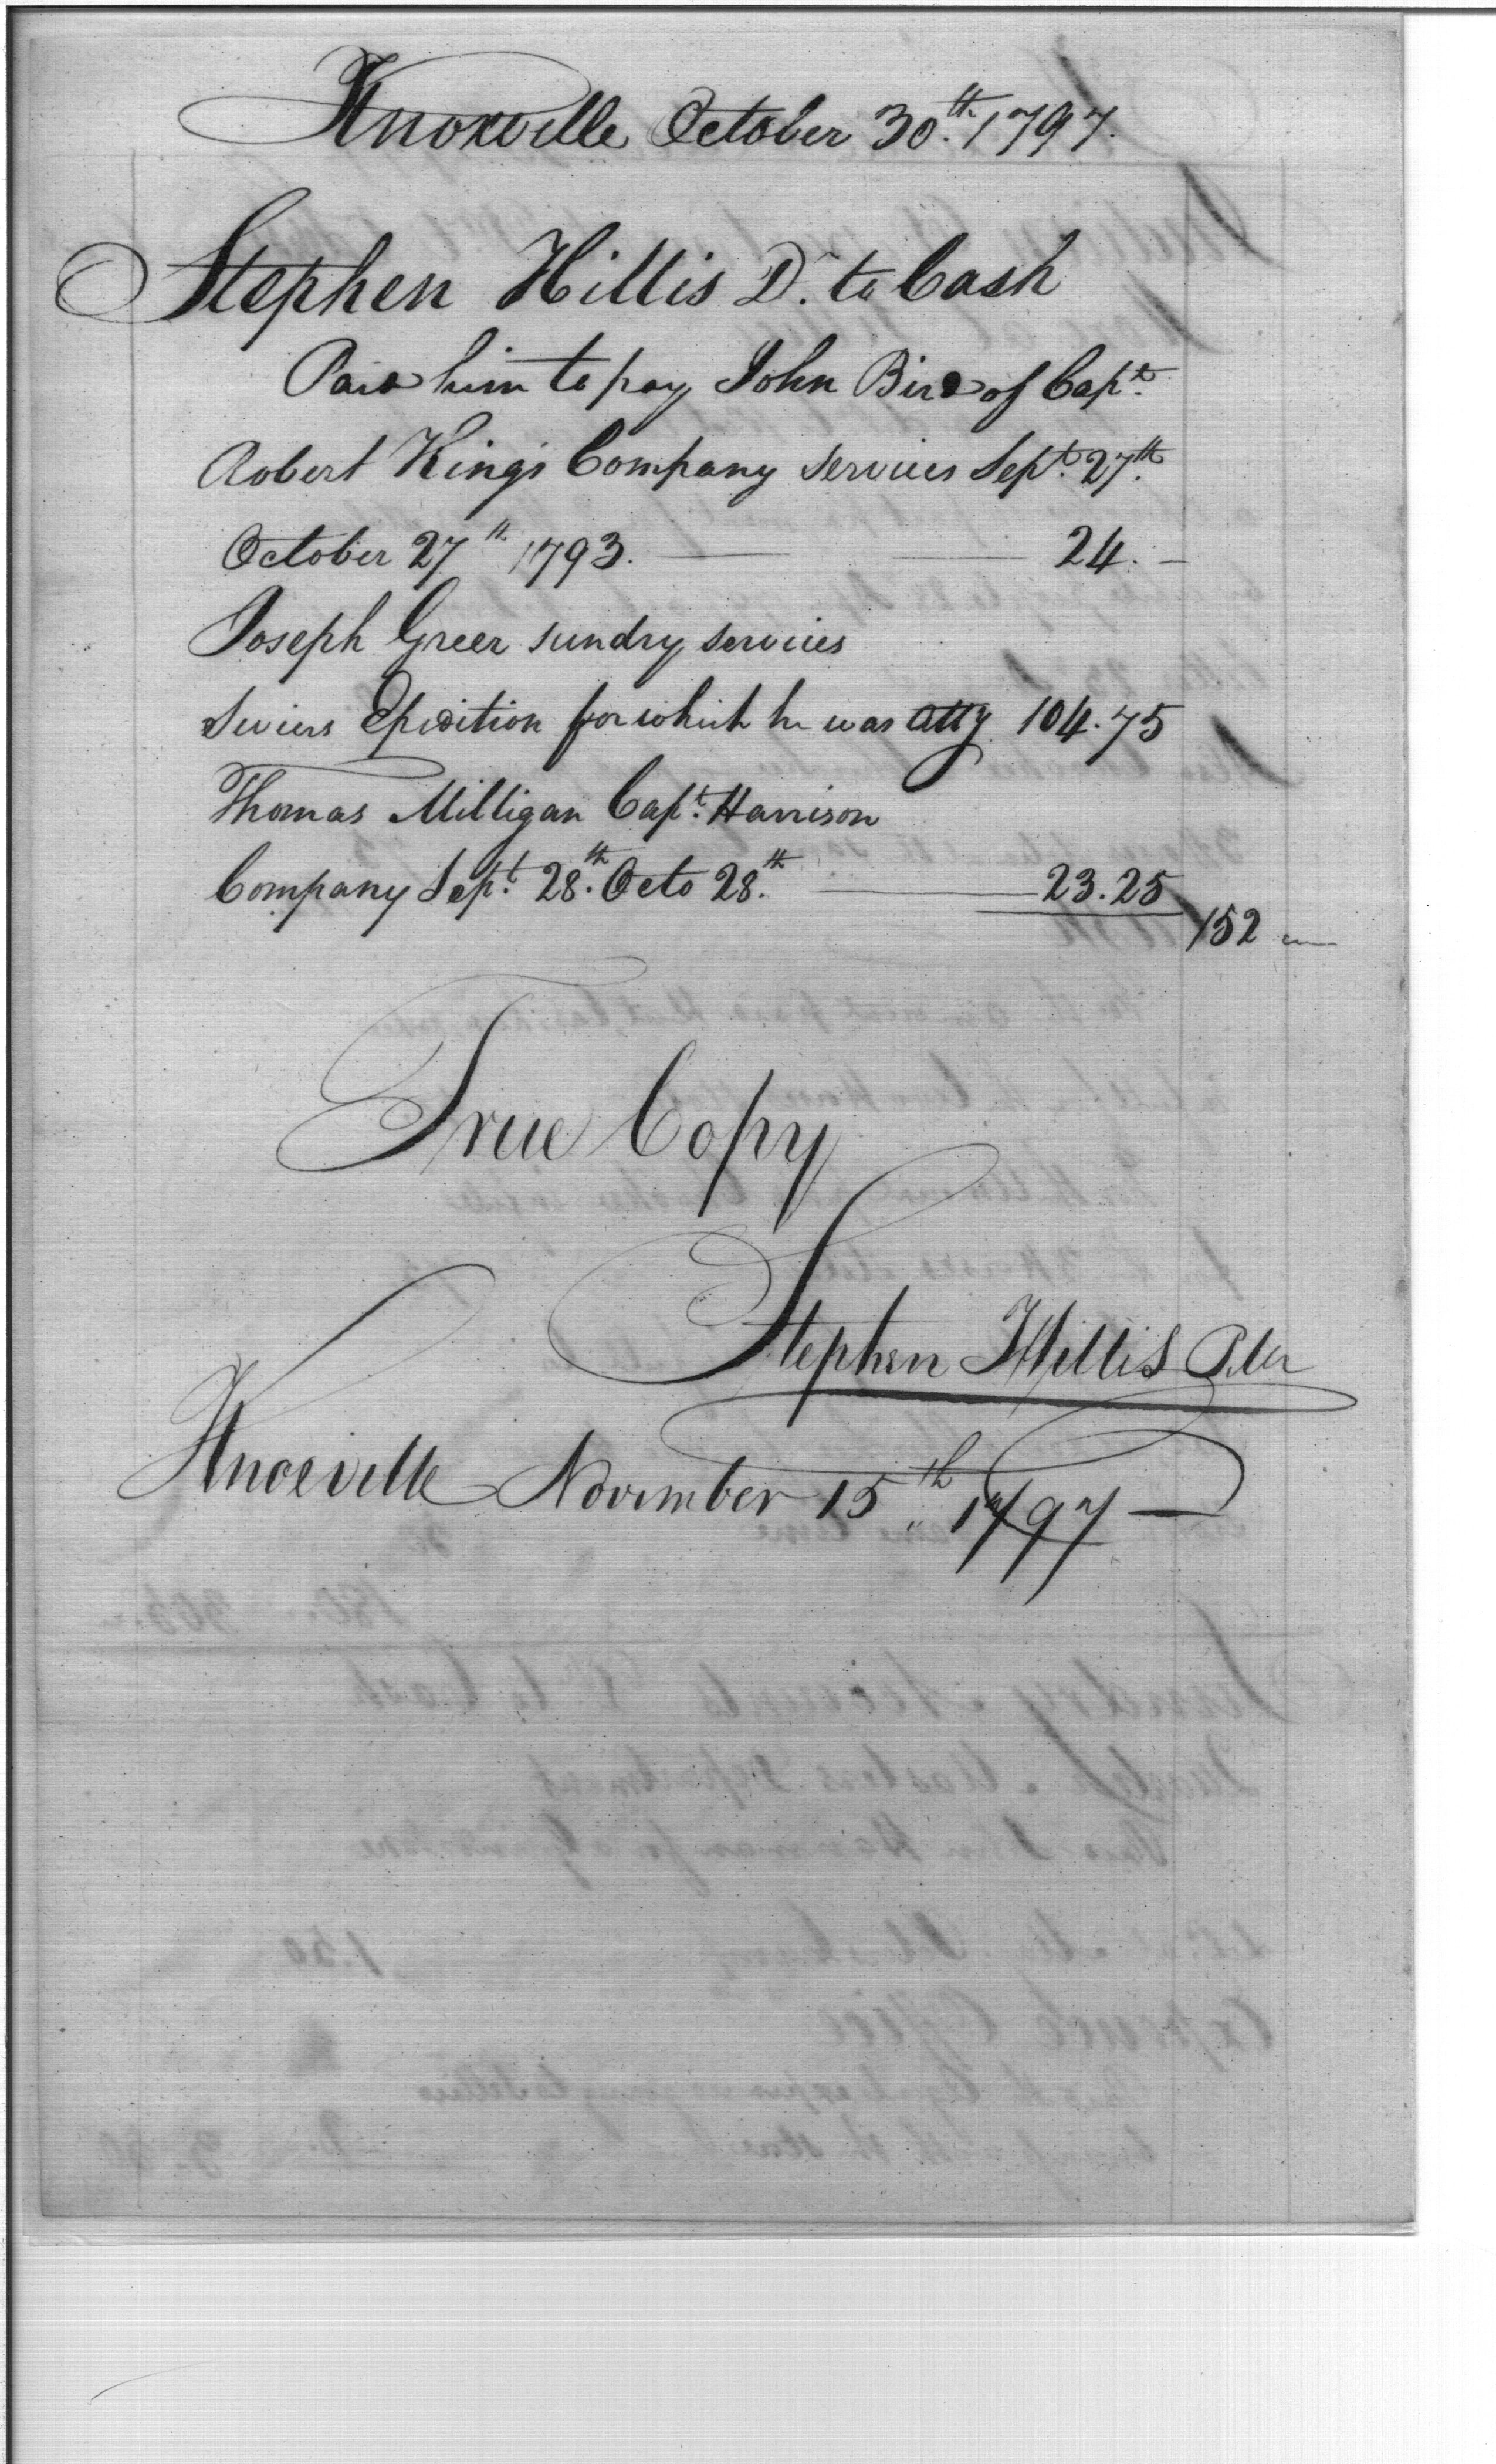 Knoxville October 30th. 1797.
Stephen Hillis Dr. to Cash
Paid him to pay John Bird of Capt.
Robert King's Company services Sept. 27th.
October 27th 1793. 24. —
Joseph Greer sundry services
Seviers Epedition for which he was atty 104.75
Thomas Milligan Capt. Harrison
Company Sept. 28th. Octo 28th. 23.25
152 —
True Copy
Stephen Hillis
Knoxville November 15th 1797 —